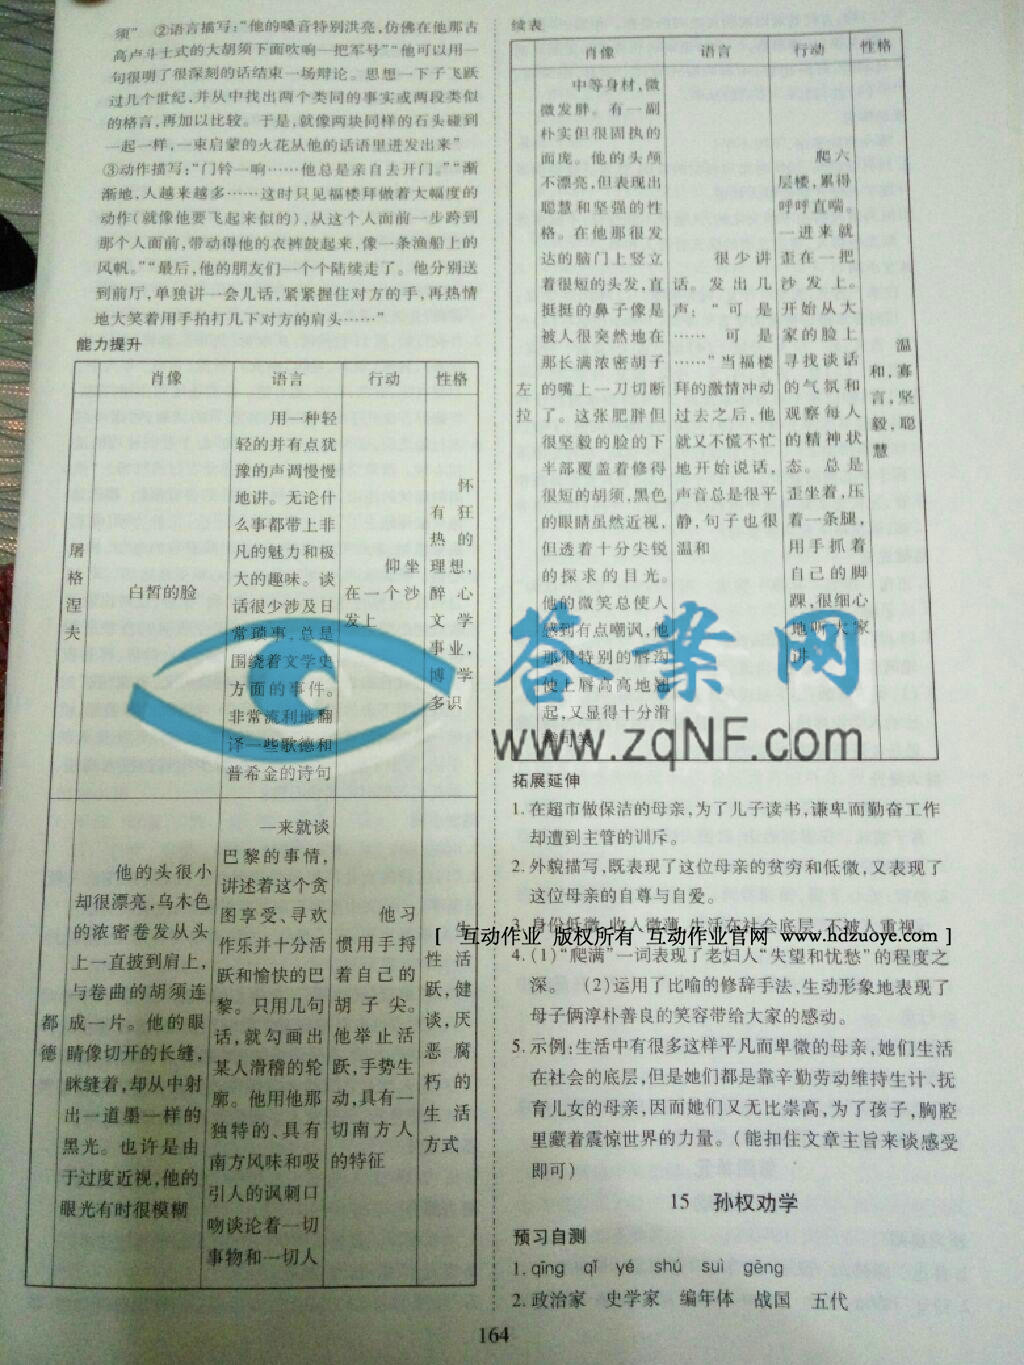 须” ②语言描写:“他的嗓音特别洪亮,仿佛在他那古
高卢斗士式的大胡须下面吹响一把军号”“他可以用一
句很明了很深刻的话结束一场辩论。思想一下子飞跃
过几个世纪,并从中找出两个类同的事实或两段类似
的格言,再加以比较。于是,就像两块同样的石头碰到
一起一样,一束启蒙的火花从他的话语里迸发出来”
③动作描写:“门铃一响……他总是亲自去开门。”“渐
渐地,人越来越多……这时只见福楼拜做着大幅度的
动作(就像他要飞起来似的),从这个人面前一步跨到
那个人面前,带动得他的衣裤鼓起来,像一条渔船上的
风帆。”“最后,他的朋友们一个个陆续走了。他分别送
到前厅,单独讲一会儿话,紧紧握住对方的手,再热情
地大笑着用手拍打几下对方的肩头……”
能力提升
肖像 语言 行动 性格
屠格涅夫
白皙的脸
用一种轻
轻的并有点犹
豫的声调慢慢
地讲。无论什
么事都带上非
凡的魅力和极
大的趣味。谈
话很少涉及日
常琐事,总是
围绕着文学史
方面的事件。
非常流利地翻
译一些歌德和
普希金的诗句
仰坐
在一个沙
发上
怀
有狂
热的
理想,
醉心
文学
事业,
博学
多识
都德
他的头很小
却很漂亮,乌木色
的浓密卷发从头
上一直披到肩上,
与卷曲的胡须连
成一片。他的眼
睛像切开的长缝,
眯缝着,却从中射
出一道墨一样的
黑光。也许是由
于过度近视,他的
眼光有时很模糊
一来就谈
巴黎的事情,
讲述着这个贪
图享受、寻欢
作乐并十分活
跃和愉快的巴
黎。只用几句
话,就勾画出
某人滑稽的轮
廓。他用他那
独特的、具有
南方风味和吸
引人的讽刺口
吻谈论着一切
事物和一切人
他习
惯用手捋
着自己的
胡子尖。
他举止活
跃,手势生
动,具有一
切南方人
的特征
生
性活
跃,健
谈,厌
恶腐
朽的
生活
方式
续表
肖像 语言 行动 性格
左拉
中等身材,微
微发胖。有一副
朴实但很固执的
面庞。他的头颅
不漂亮,但表现出
聪慧和坚强的性
格。在他那很发
达的脑门上竖立
着很短的头发,直
挺挺的鼻子像是
被人很突然地在
那长满浓密胡子
的嘴上一刀切断
了。这张肥胖但
很坚毅的脸的下
半部覆盖着修得
很短的胡须,黑色
的眼睛虽然近视,
但透着十分尖锐
的探求的目光。
他的微笑总使人
感到有点嘲讽,他
那很特别的唇沟
使上唇高高地翘
起,又显得十分滑
稽可笑
很少讲
话。发出几
声:“可是
……可是
……”当福楼
拜的激情冲动
过去之后,他
就又不慌不忙
地开始说话,
声音总是很平
静,句子也很
温和
爬六
层楼,累得
呼呼直喘。
一进来就
歪在一把
沙发上。
开始从大
家的脸上
寻找谈话
的气氛和
观察每人
的精神状
态。总是
歪坐着,压
着一条腿,
用手抓着
自己的脚
踝,很细心
地听大家
讲
温
和,寡
言,坚
毅,聪
慧
拓展延伸
1. 在超市做保洁的母亲,为了儿子读书,谦卑而勤奋工作
却遭到主管的训斥。
2. 外貌描写,既表现了这位母亲的贫穷和低微,又表现了
这位母亲的自尊与自爱。
3. 身份低微,收入微薄,生活在社会底层,不被人重视。
4. (1)“爬满”一词表现了老妇人“失望和忧愁”的程度之
深。 (2)运用了比喻的修辞手法,生动形象地表现了
母子俩淳朴善良的笑容带给大家的感动。
5. 示例:生活中有很多这样平凡而卑微的母亲,她们生活
在社会的底层,但是她们都是靠辛勤劳动维持生计、抚
育儿女的母亲,因而她们又无比崇高,为了孩子,胸腔
里藏着震惊世界的力量。(能扣住文章主旨来谈感受
即可)
15 孙权劝学
预习自测
1. qīng qǐ yé shú suì gēng
2. 政治家 史学家 编年体 战国 五代
164
答案网
www.zqNF.com
[ 互动作业 版权所有 互动作业官网 www.hdzuoye.com ]